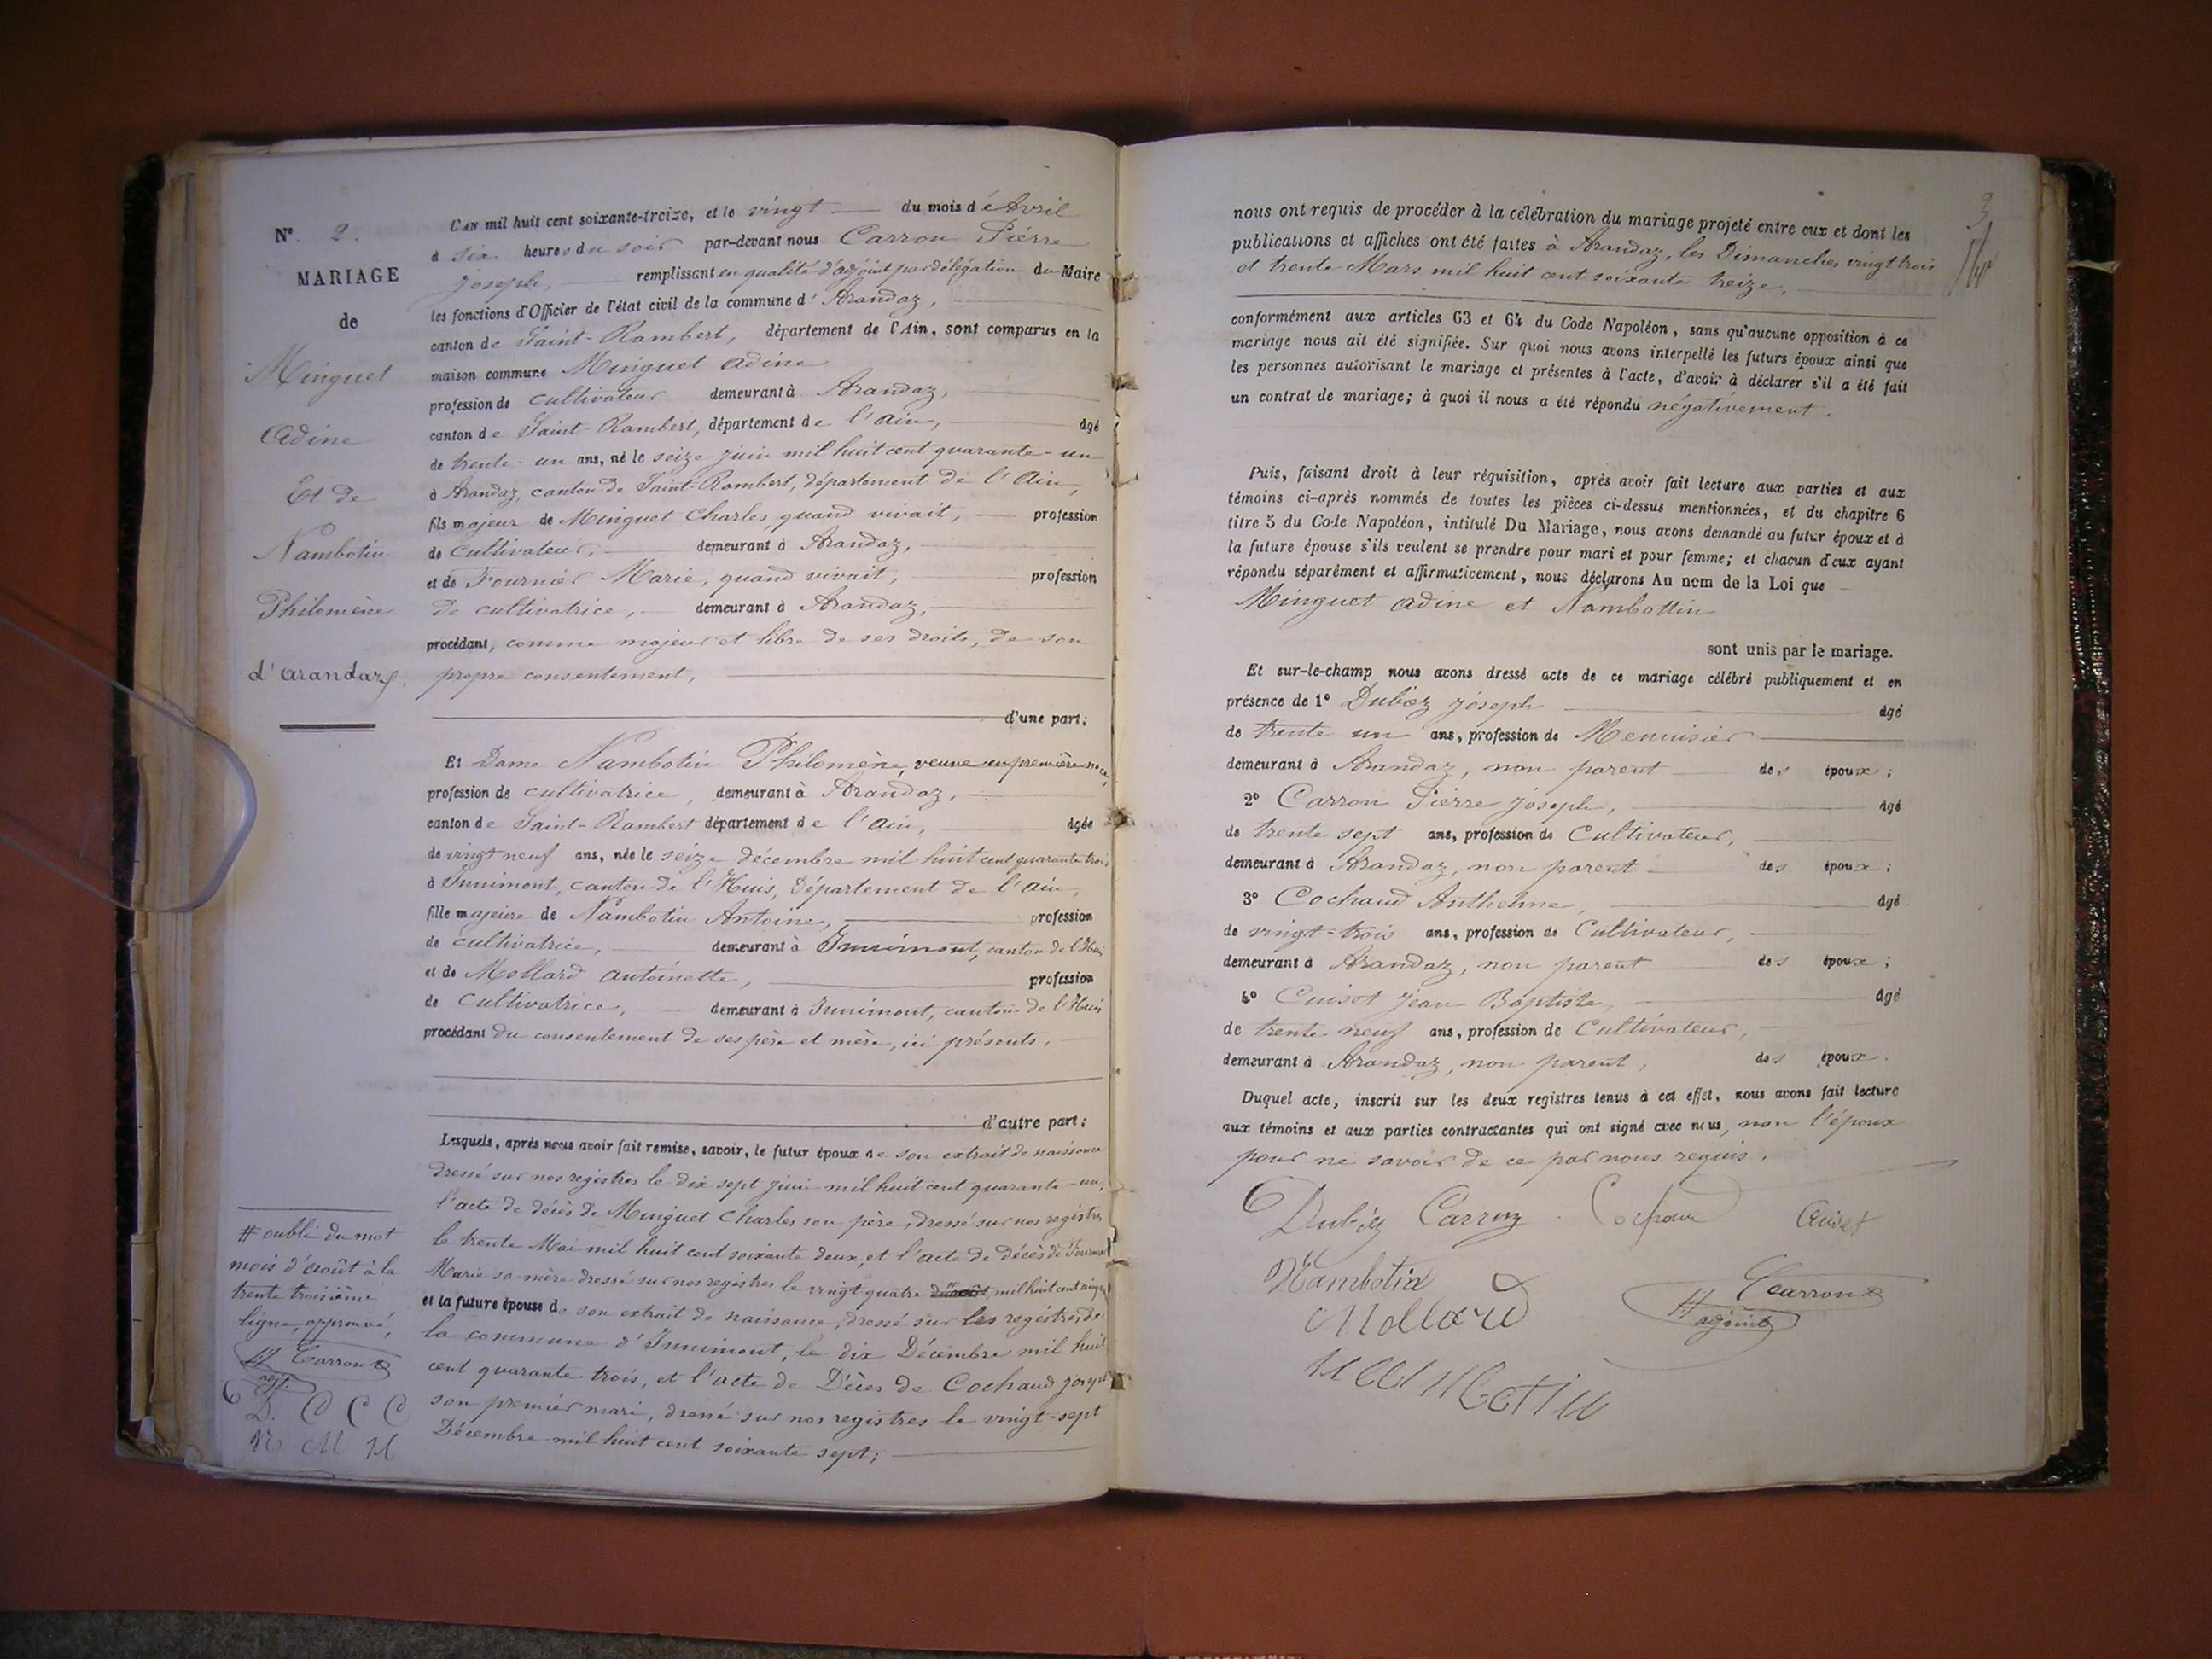 N°. 2.
MARIAGE
de
Minguet
Adine
Et de
Nambotin
Philomène
d'arandaz.
L'AN mil huit cent soixante-treize, et le vingt du mois d'Avril
à six heures du soir par-devant nous Carron Pierre
Joseph, remplissant en qualité d'adjoint par délégation du Maire
les fonctions d'Officier de l'état civil de la commune d'Arandaz,
canton de Saint-Rambert, département de l'Ain, sont comparus en la
maison commune Minguet adine
profession de cultivateur demeurant à Arandaz,
canton de Saint-Rambert, département de l'ain, âgé
de trente-un ans, né le seize juin mil huit cent quarante-un
à Arandaz, canton de Saint-Rambert, département de l'Ain,
fils majeur de Minguet Charles, quand vivait, profession
de cultivateur, demeurant à Arandaz,
et de Fournier Marie, quand vivait, profession
de cultivatrice, demeurant à Arandaz,
procédant, comme majeur et libre de ses droits, de son
propre consentement,
d'une part;
Et Dame Nambotin Philomène, veuve en première noce,
profession de cultivatrice, demeurant à Arandaz,
canton de Saint-Rambert département de l'ain, âgée
de vingt neuf ans, née le seize décembre mil huit cent quarante trois
à Innimont, canton de l'Huis, Département de l'ain,
fille majeure de Nambotin Antoine, profession
de cultivatrice, demeurant à Innimont, canton de l'Huis
et de Mollard antoinette, profession
de cultivatrice, demeurant à Innimont, canton de l'Huis
procédant du consentement de ses père et mère, ici présents,
d'autre part;
Lesquels, après nous avoir fait remise, savoir, le futur époux de son extrait de naissance
dressé sur nos registres le dix sept juin mil huit cent quarante-un,
l'acte de décès de Minguet Charles son père, dressé sur nos registres
le trente Mai mil huit cent soixante deux, et l'acte de décès de Fournier
Marie sa mère dressé sur nos registres le vingt quatre mil huit cent
et la future épouse de son extrait de naissance, dressé sur les registres de
la commune d'Innimont, le dix Décembre mil huit
cent quarante trois, et l'acte de Décès de Cochaud joseph
son premier mari, dressé sur nos registres le vingt-sept
Décembre mil huit cent soixante sept;
# oubli du mot
mois d'août à la
trente troisième
ligne, approuvé,
Carron
adj.
D. C C C
N M N
3
nous ont requis de procéder à la célébration du mariage projeté entre eux et dont les
publications et affiches ont été faites à Arandaz, les Dimanches vingt trois
et trente Mars mil huit cent soixante treize,
conformément aux articles 63 et 64 du Code Napoléon, sans qu'aucune opposition à ce
mariage nous ait été signifiée. Sur quoi nous avons interpellé les futurs époux ainsi que
les personnes autorisant le mariage et présentes à l'acte, d'avoir à déclarer s'il a été fait
un contrat de mariage; à quoi il nous a été répondu négativement.
Puis, faisant droit à leur réquisition, après avoir fait lecture aux parties et aux
témoins ci-après nommés de toutes les pièces ci-dessus mentionnées, et du chapitre 6
titre 5 du Code Napoléon, intitulé Du Mariage, nous avons demandé au futur époux et à
la future épouse s'ils veulent se prendre pour mari et pour femme; et chacun d'eux ayant
répondu séparément et affirmativement, nous déclarons Au nom de la Loi que
Minguet adine et Nambottin
sont unis par le mariage.
Et sur-le-champ nous avons dressé acte de ce mariage célébré publiquement et en
présence de 1° Dubiez joseph âgé
de trente un ans, profession de Menuisier
demeurant à Arandaz, non parent des époux;
2° Carron Pierre joseph, âgé
de trente sept ans, profession de Cultivateur,
demeurant à Arandaz, non parent des époux;
3° Cochaud Anthelme, âgé
de vingt-trois ans, profession de Cultivateur,
demeurant à Arandaz, non parent des époux;
4° Cuiset Jean Baptiste, âgé
de trente-neuf ans, profession de Cultivateur,
demeurant à Arandaz, non parent, des époux.
Duquel acte, inscrit sur les deux registres tenus à cet effet, nous avons fait lecture
aux témoins et aux parties contractantes qui ont signé avec nous, non l'époux
pour ne savoir de ce par nous requis.
Dubiez Carron Cuiset
Nambotin
Carron
adjoint
Mollard